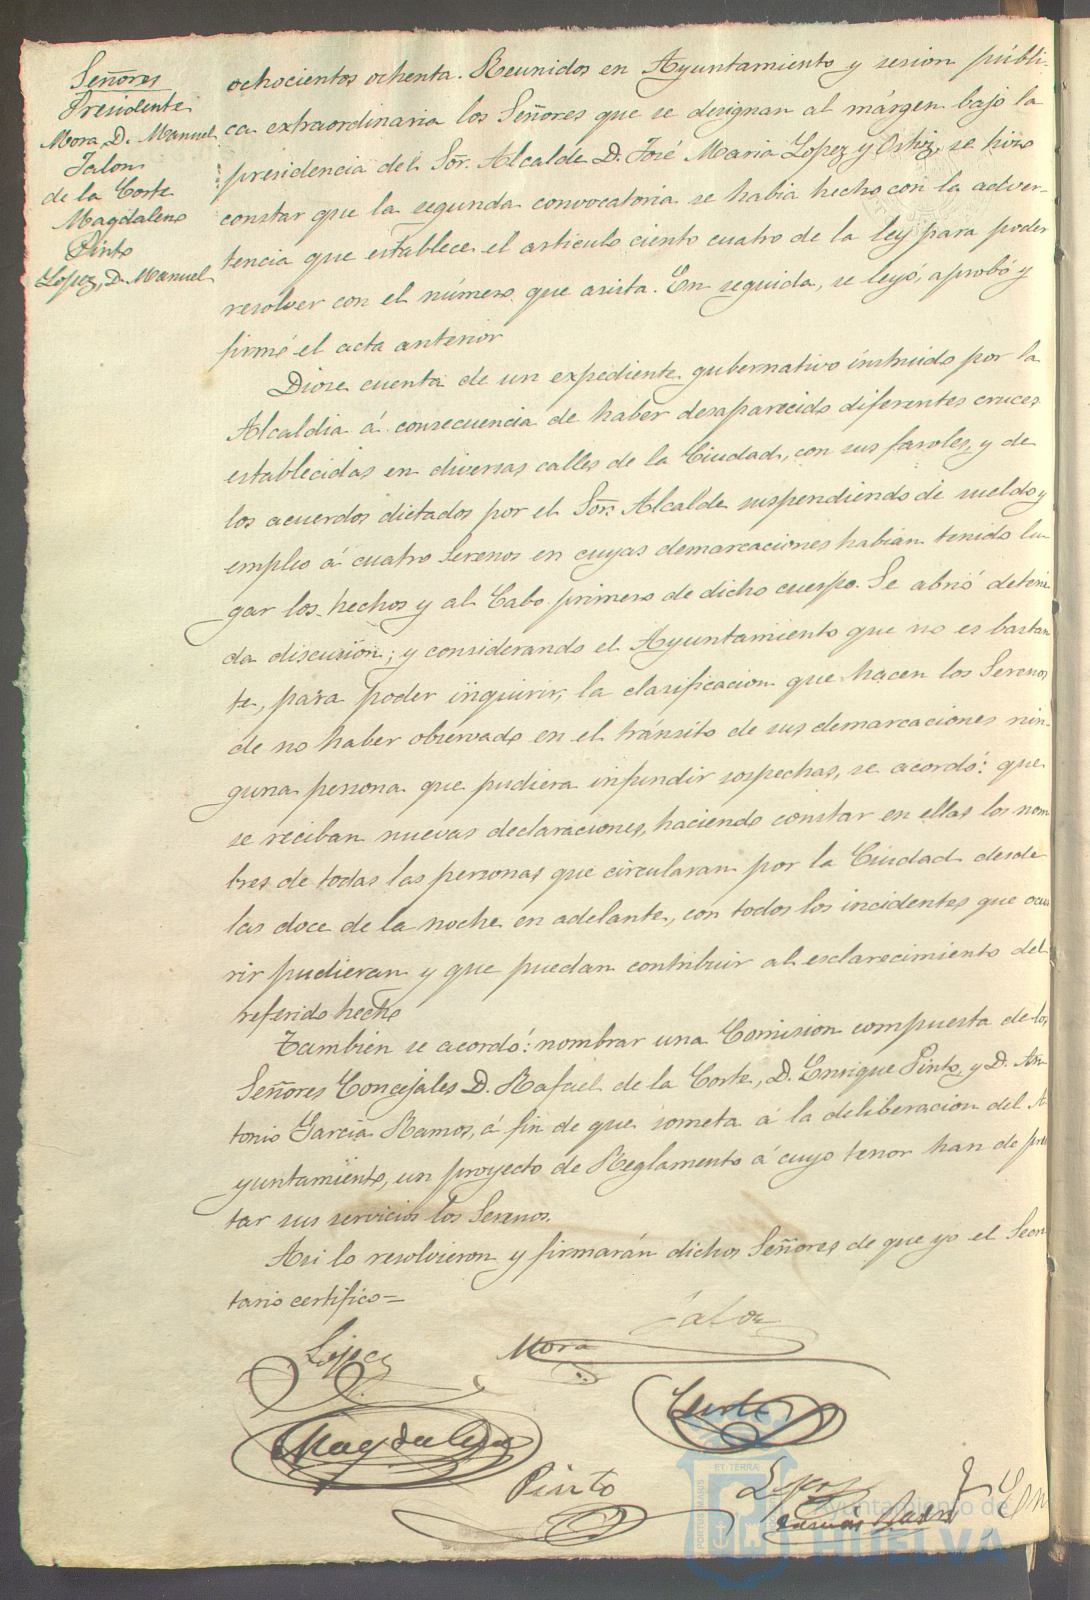 Señores
Presidente
Mora, D. Manuel
Jalon
de la Corte
Magdaleno
Pinto
Lopez, D. Manuel
ochocientos ochenta. Reunidos en Ayuntamiento y sesion públi-
ca extraordinaria los Señores que se designan al márgen bajo la
presidencia del Sor. Alcalde D. José Maria Lopez y Ortiz, se hizo
constar que la segunda convocatoria se habia hecho con la adver-
tencia que establece el articulo ciento cuatro de la ley para poder
resolver con el número que asista. En seguida, se leyó, aprobó y
firmó el acta anterior
Diose cuenta de un expediente gubernativo instruido por la
Alcaldia á consecuencia de haber desaparecido diferentes cruces
establecidas en diversas calles de la Ciudad, con sus faroles, y de
los acuerdos dictados por el Sor. Alcalde suspendiendo de sueldo y
empleo á cuatro Serenos en cuyas demarcaciones habian tenido lu-
gar los hechos y al Cabo primero de dicho cuerpo. Se abrió deteni
da discusion; y considerando el Ayuntamiento que no es bastan
te, para poder inquirir, la clasificacion que hacen los Serenos
de no haber observado en el tránsito de sus demarcaciones nin-
guna persona que pudiera infundir sospechas, se acordó: que
se reciban nuevas declaraciones, haciendo constar en ellas los nom
bres de todas las personas que circularan por la Ciudad desde
las doce de la noche en adelante, con todos los incidentes que ocur
rir pudieran y que puedan contribuir al esclarecimiento del
referido hecho
Tambien se acordó: nombrar una Comision compuesta de los
Señores Concejales D. Rafael de la Corte, D. Enrique Pinto y D. An
tonio Garcia Ramos, á fin de que someta á la deliberacion del A
yuntamiento, un proyecto de Reglamento á cuyo tenor han de pres
tar sus servicios los Serenos.
Asi lo resolvieron y firmarán dichos Señores de que yo el Secre
tario certifico=
Jalon
Lopez
Mora
Corte
Magdaleno
Pinto
Lopez
Garcia Ramos
ET TERRAE
PORTUS MARIS
Ayuntamiento de
HUELVA